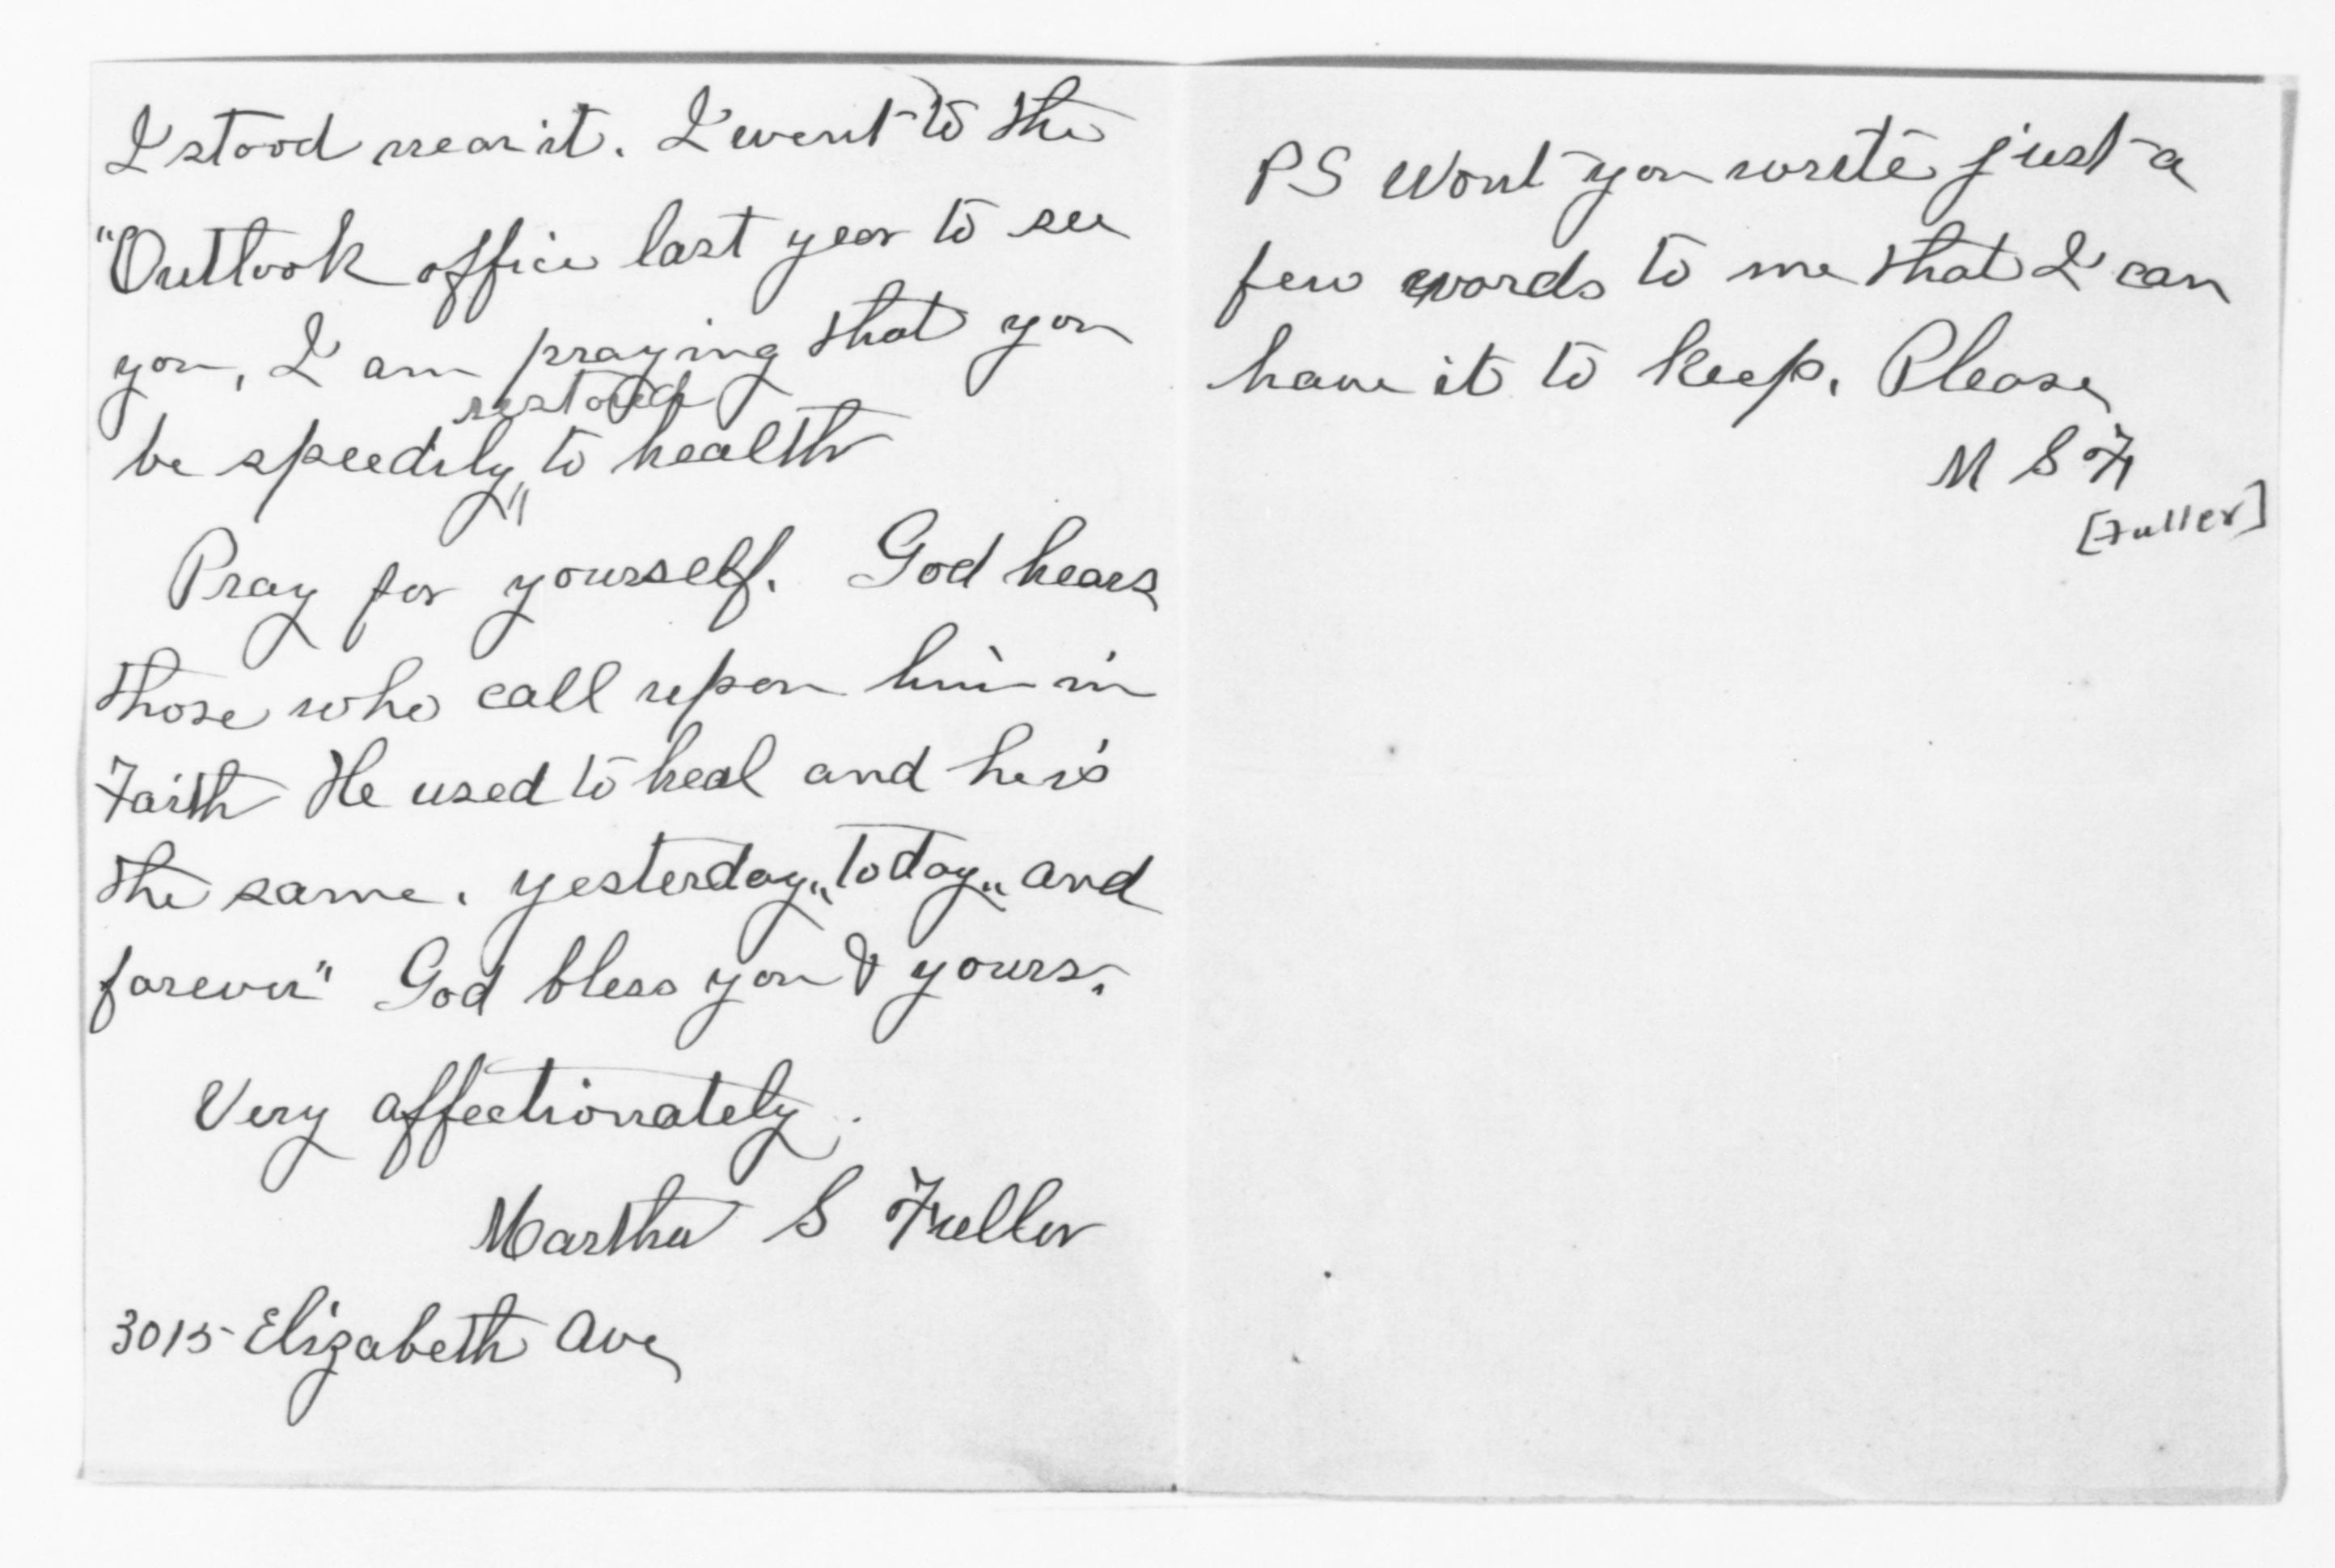 I stood near it. I went to the
"Outlook office last year to see
you, I am praying that you
restored
be speedily " to health
Pray for yourself. God hears
those who call upon him in
Faith He used to heal and he is
the same. yesterday "today" and
forever" God bless you & yours.
Very affectionately.
Martha S Fuller
3015 Elizabeth Ave
PS Wont you write just a
few words to me that I can
have it to keep. Please
M S F
[Fuller]